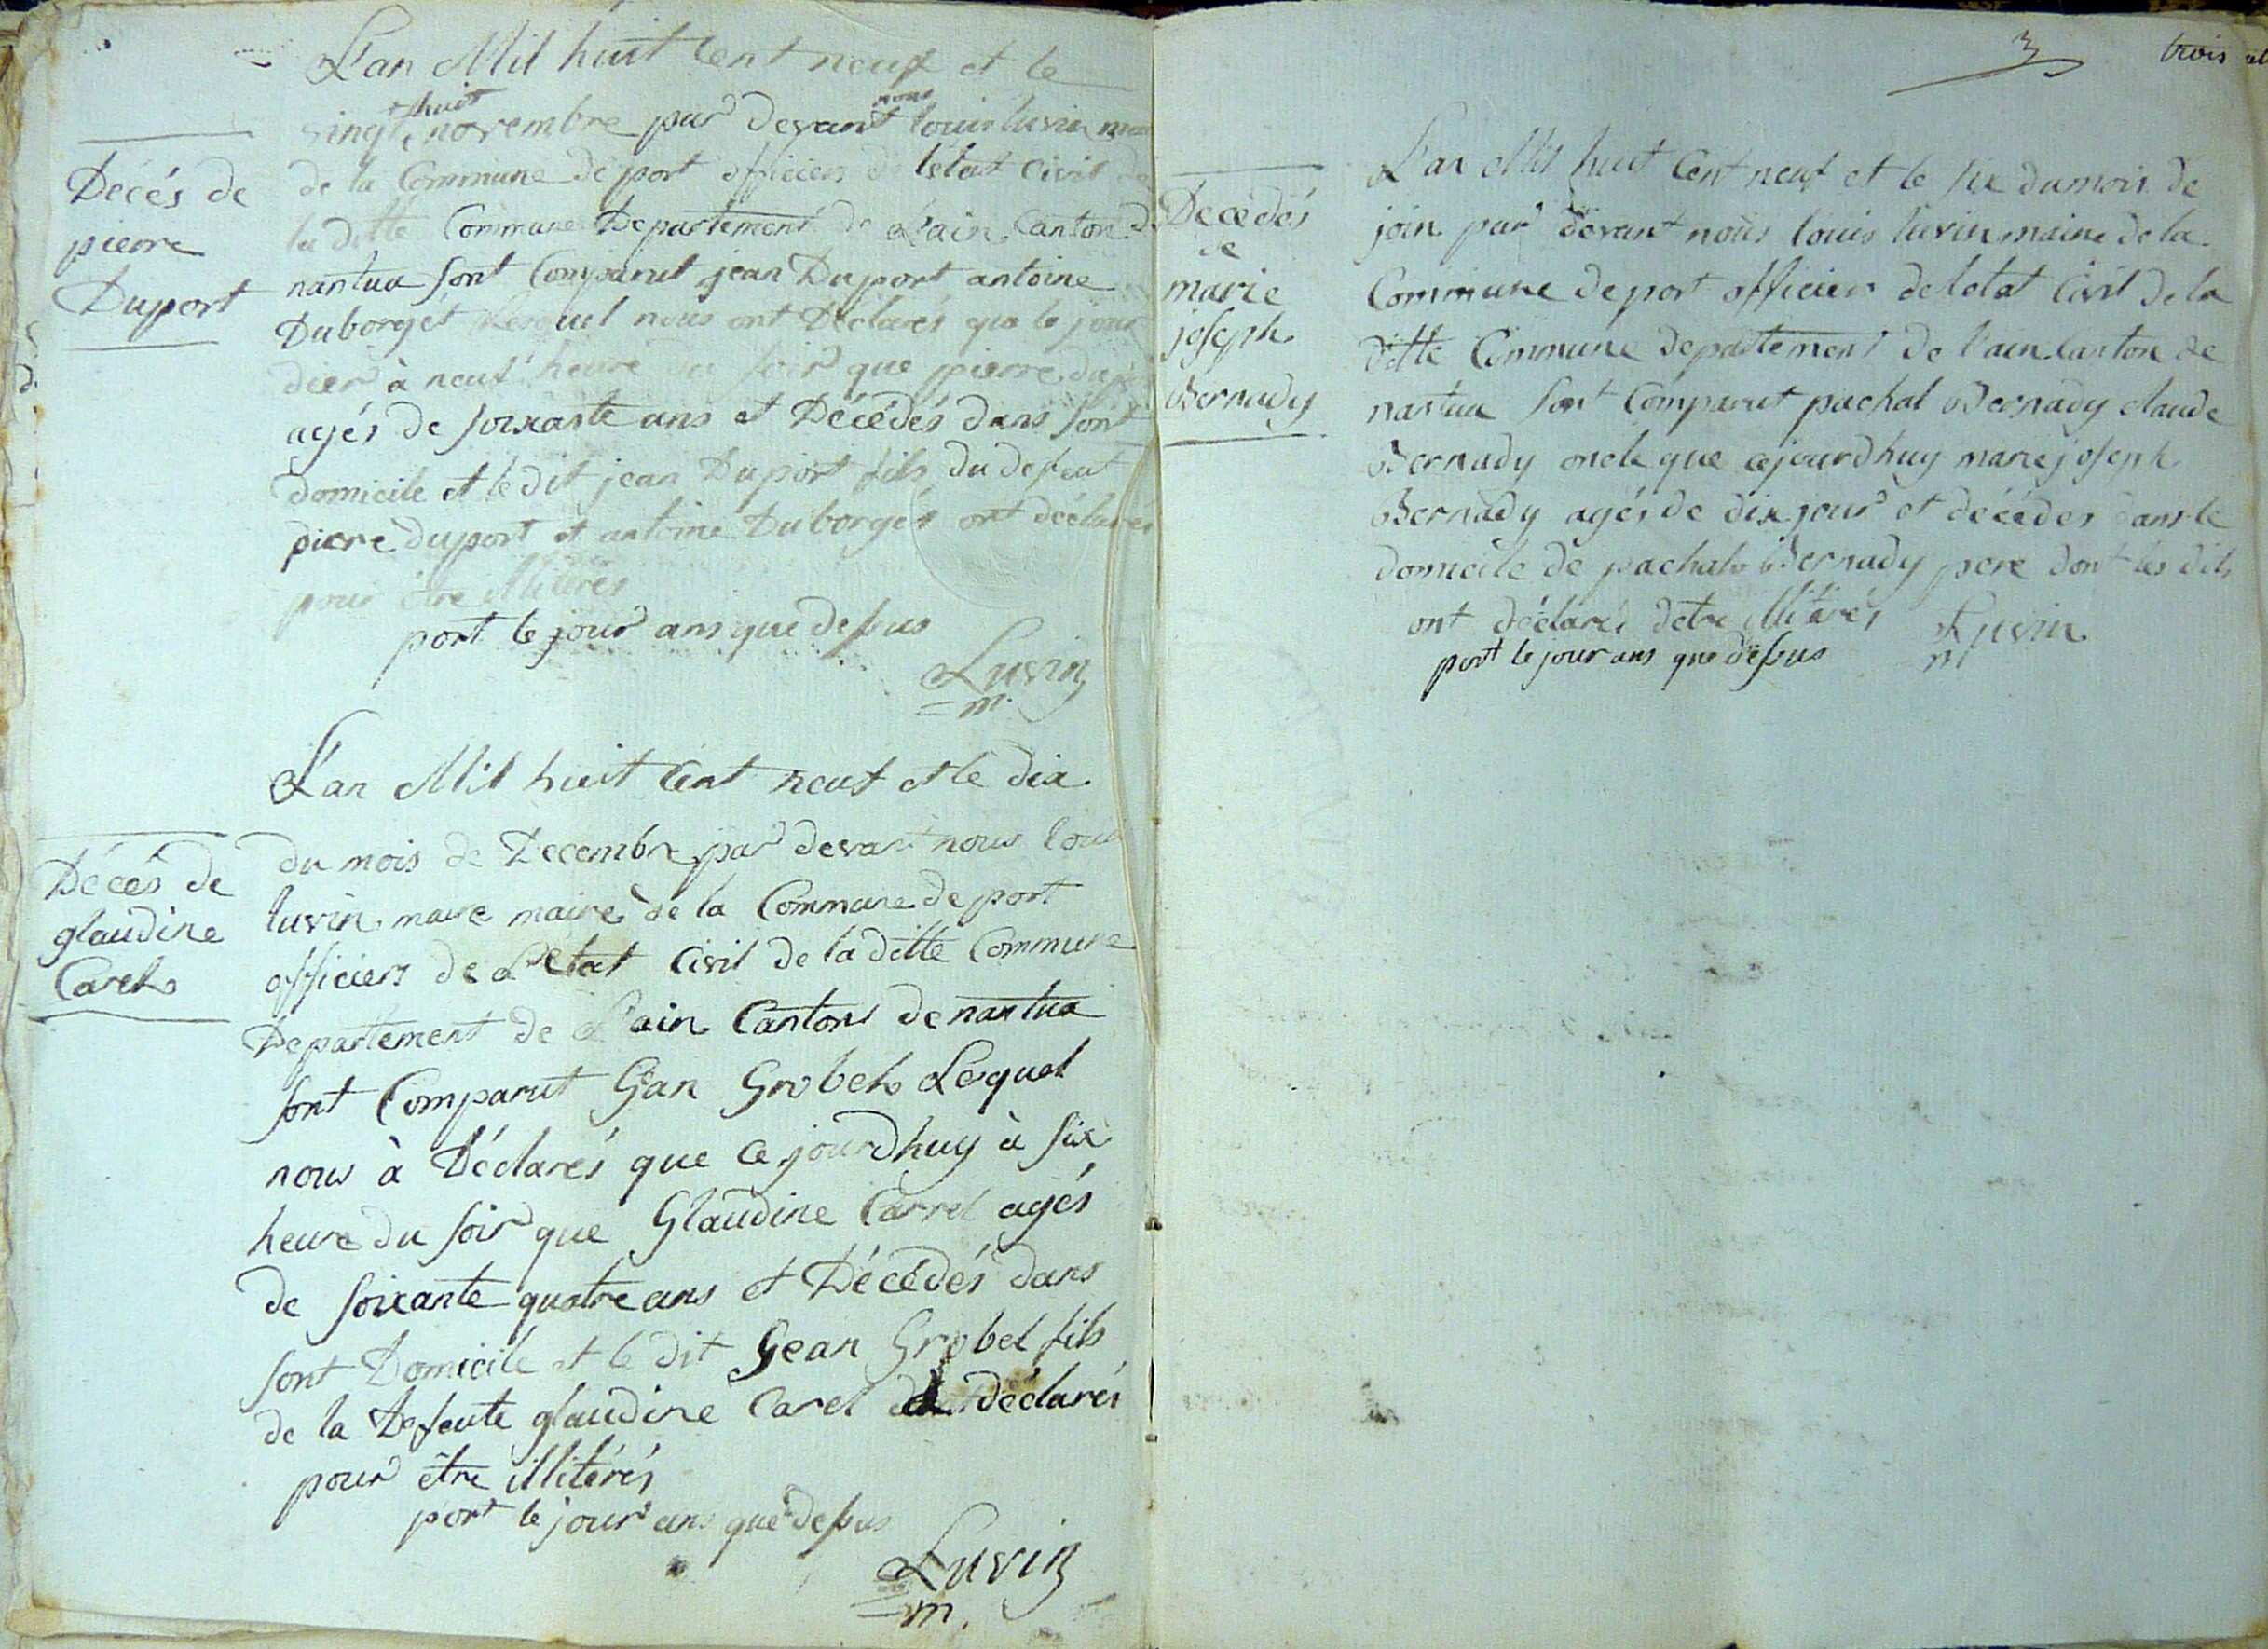 L'an Mil huit Cent neuf et le
vingt huit novembre par devant nous louis luvin
de la Commune de port officiers de letat civil de
la ditte Commune Departement de L'ain Canton de
nantua sont Comparut jean Duport antoine
Duborgét Lesquel nous ont Déclarés que le jour
dier à neuf heure du soir que pierre duport
agés de soixante ans et Décédés dans sont
domicile et le dit jean Duport fils du defeut
piere duport et antoine Duborgés ont déclarés
pour être illiterés
port le jour ans que dessus
Luvin
m.
Decés de
pierre
Duport
L'an Mil huit Cent neuf et le dix
du mois de Decembre par devant nous louis
luvin maire maire de la Commune de port
officiers de L'etat Civil de la ditte Commune
Departement de L'ain Cantons de nantua
sont Comparut Gean Grobel Lesquel
nous à Déclarés que ce jourdhuy à six
heure du soir que Glaudine Carrel agés
de soixante quatre ans et Décédés dans
sont Domicile et le dit Gean Grobel fils
de la Defeute glaudine Carel déclarés
pour être illitérés
port le jour ans que dessus
Luvin
m.
Décés de
glaudine
Carel
3 trois
L'an Mil huit Cent neuf et le six du mois de
join par devant nous louis luvin maire de la
Commune de port officier de letat Civil de la
ditte Commune departement de l'ain Canton de
nantua sont Comparut pachal Bernady claude
Bernady oncle que cejourdhuy marie joseph
Bernady agés de dix jour et décédés dans le
domicile de pachal Bernady pere dont les dits
ont déclarés detre illitarés Luvin
port le jour ans que dessus m
Decédés
de
marie
joseph
Bernady